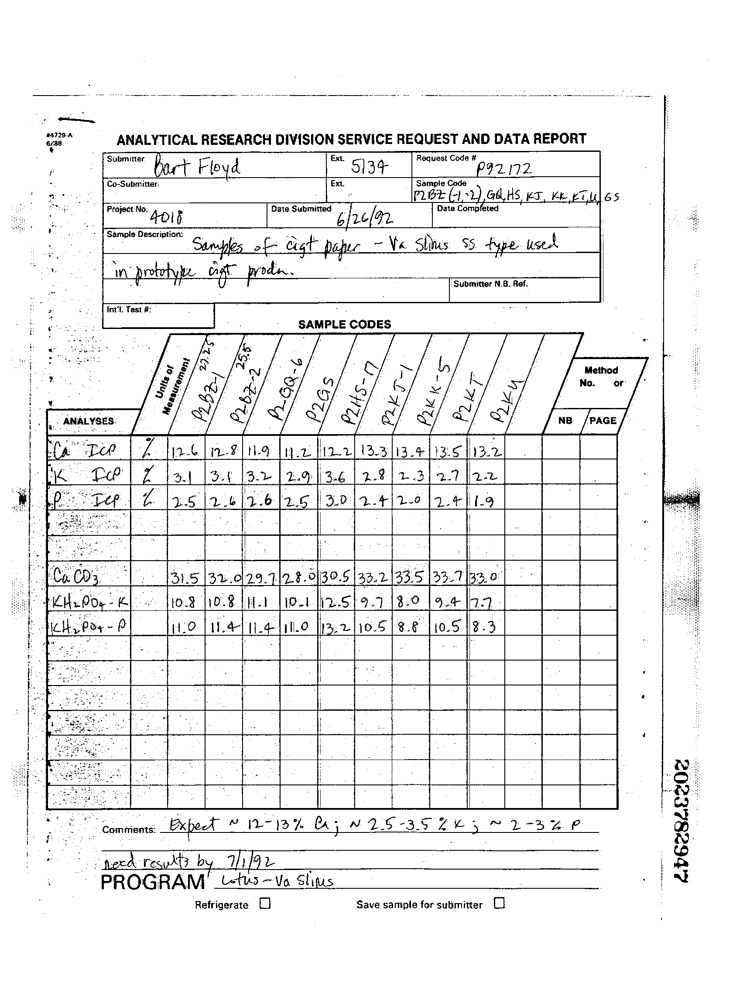 #4729-A
6/88
ANALYTICAL RESEARCH DIVISION SERVICE REQUEST AND DATA REPORT
Submitter Bart Floyd Ext. 5134 Request Code # P92172
Co-Submitter Ext. Sample Code P2BZ(-1,-2), GQ, HS, KJ, KK, KT, U, GS
Project No. 4018 Date Submitted 6/26/92 Date Completed
Sample Description: Samples of cigt paper - Va Slims SS type used
in prototype cigt prodn.
Submitter N.B. Ref.
Int'l. Test #:
SAMPLE CODES
ANALYSES Units of Measurement P2BZ-1 27.25 P2BZ-2 25.5 P2GQ-6 P2GS P2HS-17 P2KJ-1 P2KK-5 P2KT P2KU Method No. or NB PAGE
Ca ICP % 12.6 12.8 11.9 11.2 12.2 13.3 13.4 13.5 13.2
K ICP % 3.1 3.1 3.2 2.9 3.6 2.8 2.3 2.7 2.2
P ICP % 2.5 2.6 2.6 2.5 3.0 2.4 2.0 2.4 1.9
CaCO3 31.5 32.0 29.7 28.0 30.5 33.2 33.5 33.7 33.0
KH2PO4-K 10.8 10.8 11.1 10.1 12.5 9.7 8.0 9.4 7.7
KH2PO4-P 11.0 11.4 11.4 11.0 13.2 10.5 8.8 10.5 8.3
Comments: Expect ~ 12-13% Ca; ~ 2.5-3.5% K; ~ 2-3% P
need results by 7/1/92
PROGRAM Lotus-Va Slims
Refrigerate Save sample for submitter
2023782947